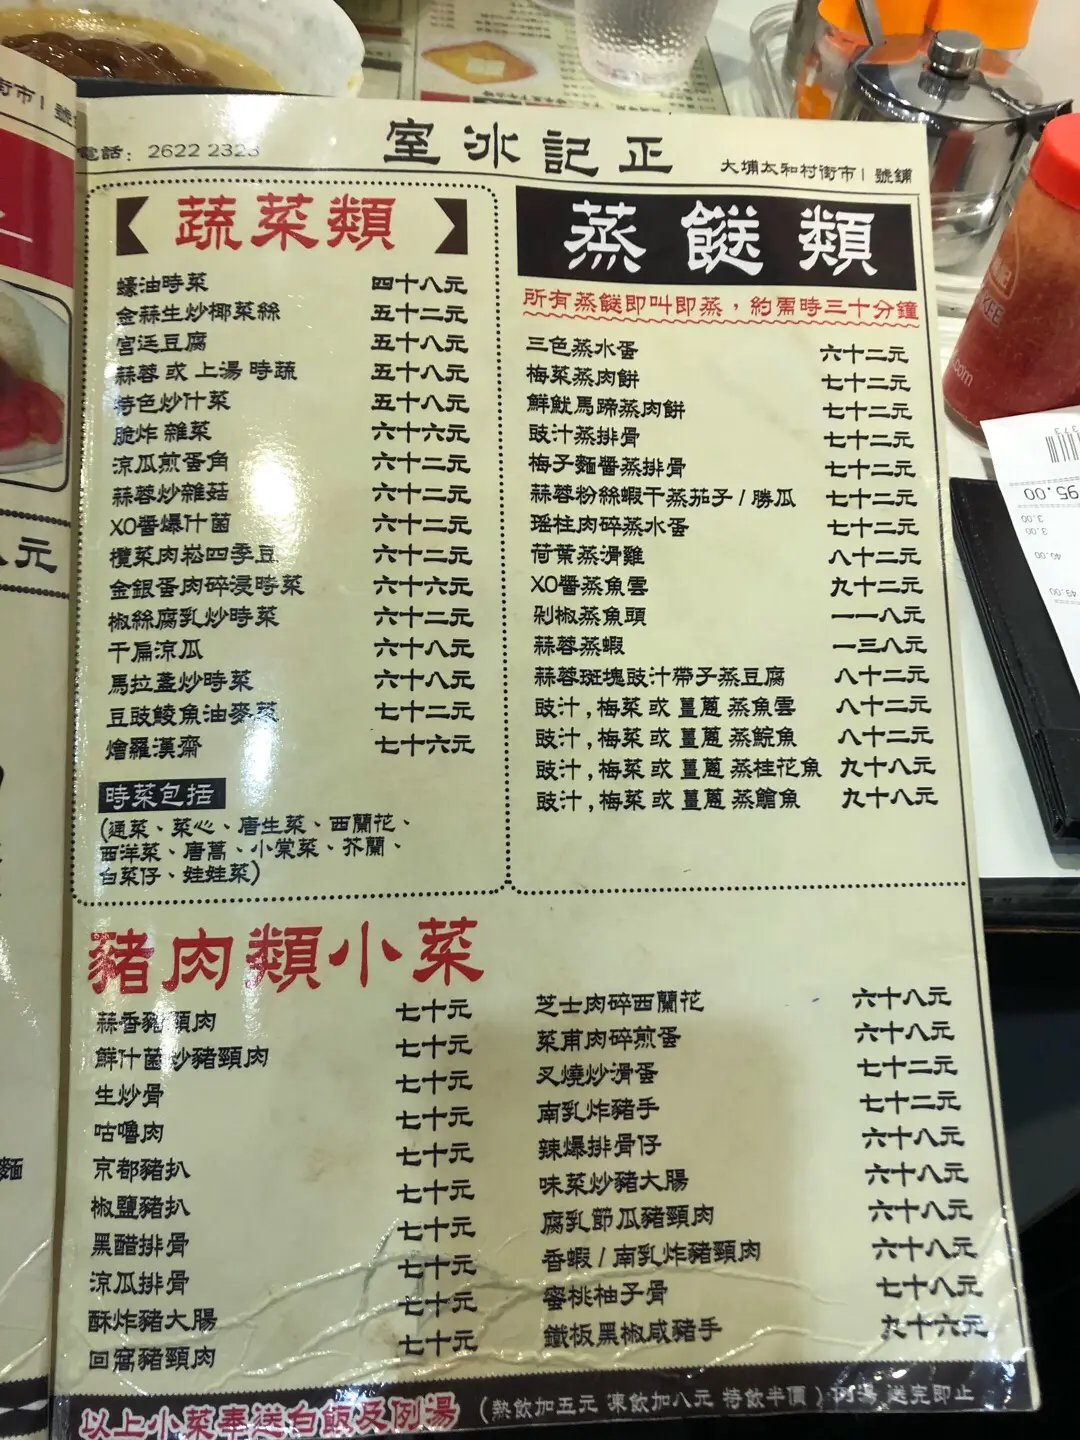 電話：2622 2323
室冰記正
大埔太和村街市1號鋪
蔬菜類
蠔油時菜 四十八元
金蒜生炒椰菜絲 五十二元
宮廷豆腐 五十八元
蒜蓉 或 上湯 時蔬 五十八元
特色炒什菜 五十八元
脆炸 雜菜 六十六元
涼瓜煎蛋角 六十二元
蒜蓉炒雜菇 六十二元
XO醬爆什菌 六十二元
欖菜肉崧四季豆 六十二元
金銀蛋肉碎浸時菜 六十六元
椒絲腐乳炒時菜 六十二元
干扁涼瓜 六十八元
馬拉盞炒時菜 六十八元
豆豉鯪魚油麥菜 七十二元
燴羅漢齋 七十六元
時菜包括
(通菜、菜心、唐生菜、西蘭花、
西洋菜、唐蒿、小棠菜、芥蘭、
白菜仔、娃娃菜)
蒸餸類
所有蒸餸即叫即蒸，約需時三十分鐘
三色蒸水蛋 六十二元
梅菜蒸肉餅 七十二元
鮮魷馬蹄蒸肉餅 七十二元
豉汁蒸排骨 七十二元
梅子麵醬蒸排骨 七十二元
蒜蓉粉絲蝦干蒸茄子 / 勝瓜 七十二元
瑤柱肉碎蒸水蛋 七十二元
荷葉蒸滑雞 八十二元
XO醬蒸魚雲 九十二元
剁椒蒸魚頭 一一八元
蒜蓉蒸蝦 一三八元
蒜蓉斑塊豉汁帶子蒸豆腐 八十二元
豉汁,梅菜 或 薑蔥 蒸魚雲 八十二元
豉汁,梅菜 或 薑蔥 蒸鯇魚 八十二元
豉汁,梅菜 或 薑蔥 蒸桂花魚 九十八元
豉汁,梅菜 或 薑蔥 蒸鱠魚 九十八元
豬肉類小菜
蒜香豬頸肉 七十元
鮮什菌炒豬頸肉 七十元
生炒骨 七十元
咕嚕肉 七十元
京都豬扒 七十元
椒鹽豬扒 七十元
黑醋排骨 七十元
涼瓜排骨 七十元
酥炸豬大腸 七十元
回窩豬頸肉 七十元
芝士肉碎西蘭花 六十八元
菜甫肉碎煎蛋 六十八元
叉燒炒滑蛋 七十二元
南乳炸豬手 七十二元
辣爆排骨仔 六十八元
味菜炒豬大腸 六十八元
腐乳節瓜豬頸肉 六十八元
香蝦 / 南乳炸豬頸肉 六十八元
蜜桃柚子骨 七十八元
鐵板黑椒咸豬手 九十六元
以上小菜奉送白飯及例湯 (熱飲加五元 凍飲加八元 特飲半價) 例湯 送完即止
街市1號
元
麵
95.00
3.00
3.00
40.00
49.00